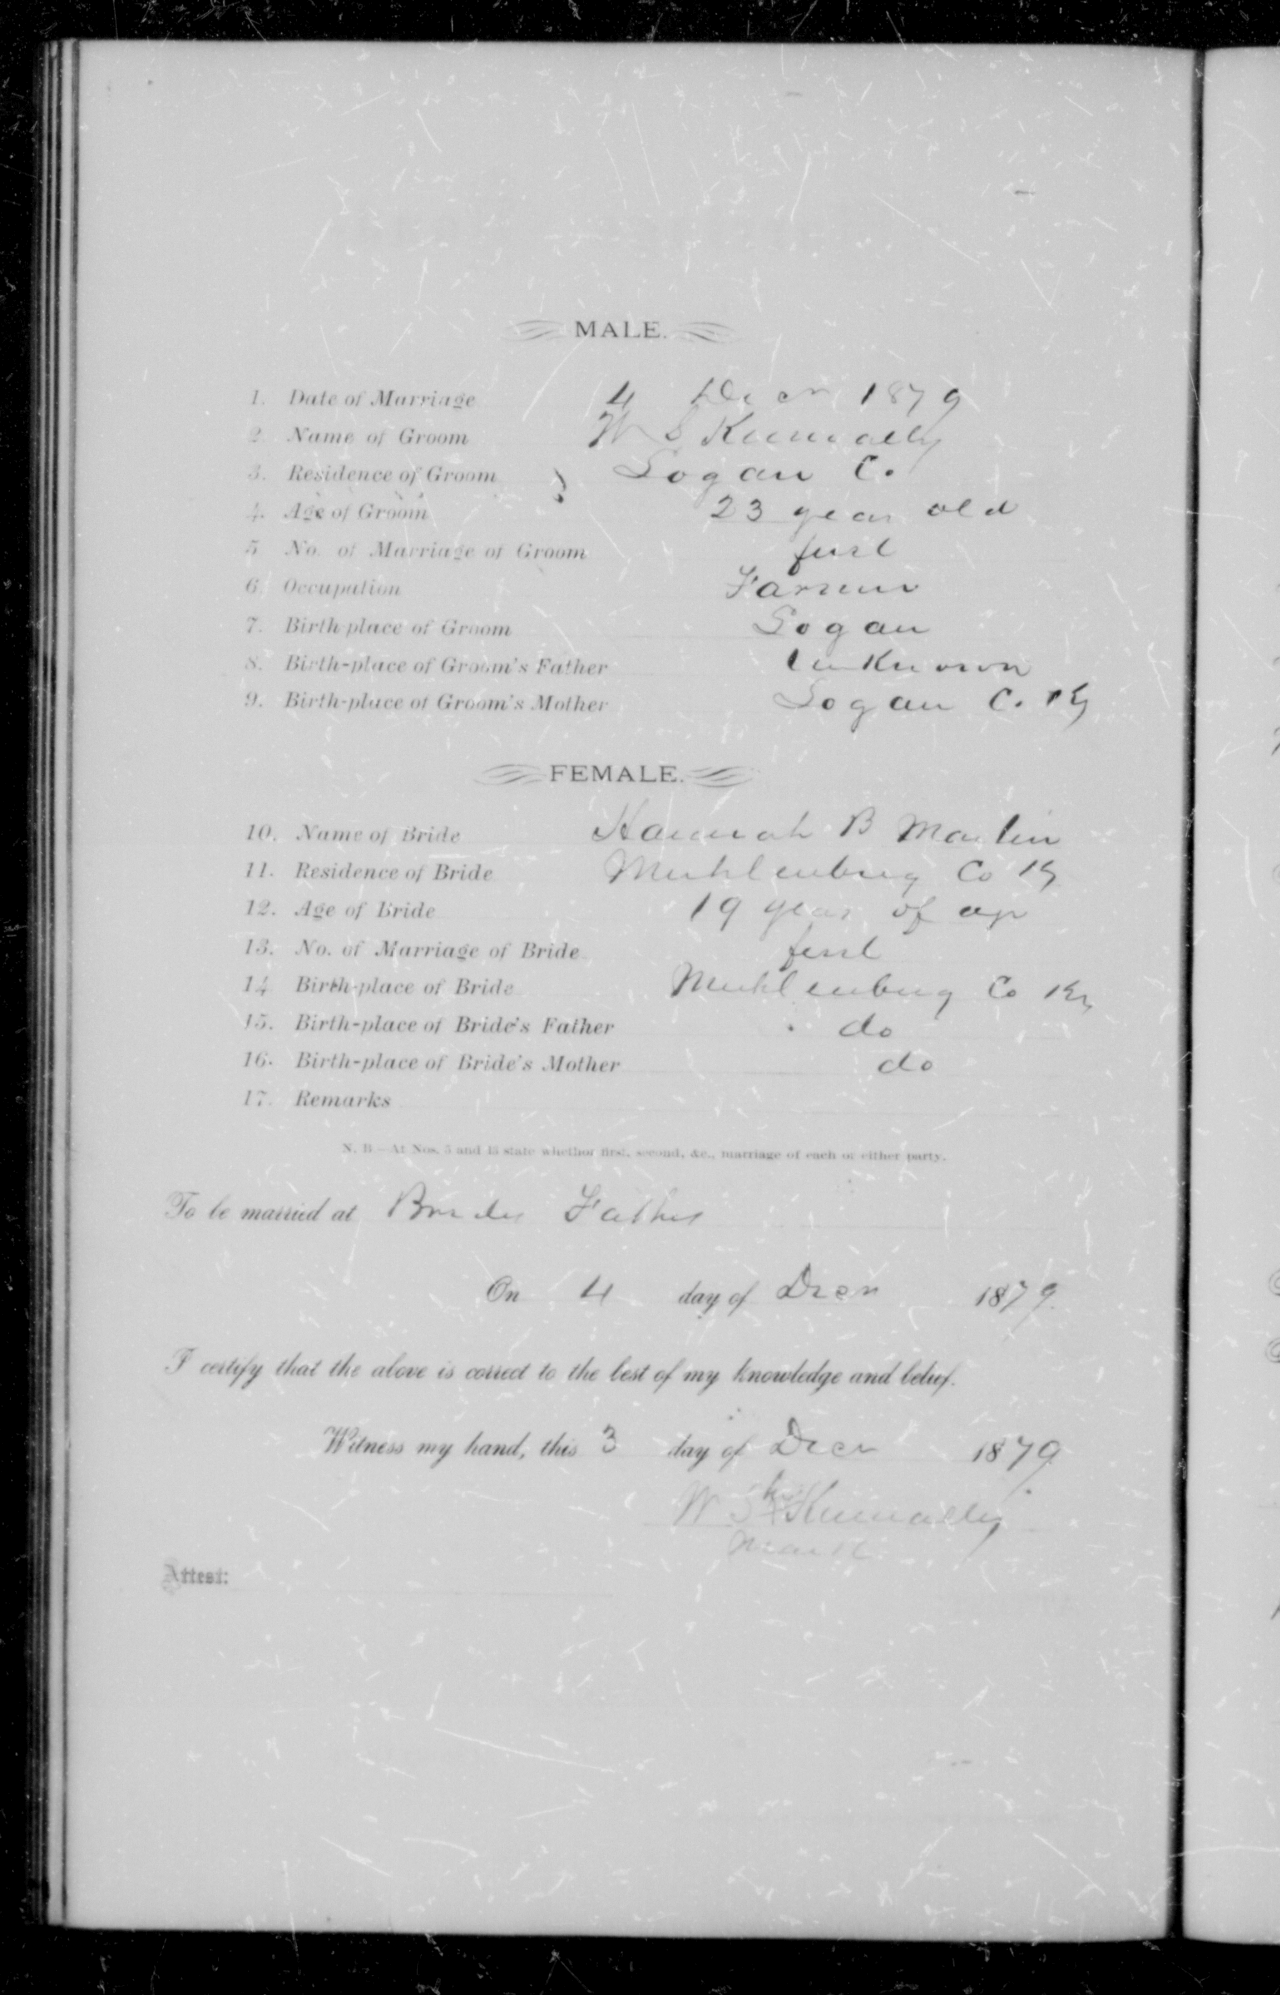 MALE.
1. Date of Marriage 4 Decr 1879
2. Name of Groom W S Kennally
3. Residence of Groom Logan C.
4. Age of Groom 23 years old
5 No. of Marriage of Groom first
6. Occupation Farmer
7. Birth-place of Groom Logan
8. Birth-place of Groom's Father Unknown
9. Birth-place of Groom's Mother Logan C. Ky
FEMALE.
10. Name of Bride Hannah B Martin
11. Residence of Bride Muhlenburg Co Ky
12. Age of Bride 19 years of age
13. No. of Marriage of Bride first
14 Birth-place of Bride Muhlenburg Co Ky
15. Birth-place of Bride's Father do
16. Birth-place of Bride's Mother do
17. Remarks
N. B.—At Nos. 5 and 13 state whether first, second, &c., marriage of each or either party.
To be married at Brides Fathers
On 4 day of Decr 1879.
I certify that the above is correct to the best of my knowledge and belief.
Witness my hand, this 3 day of Decr 1879
his
W S X Kennally
mark
Attest: